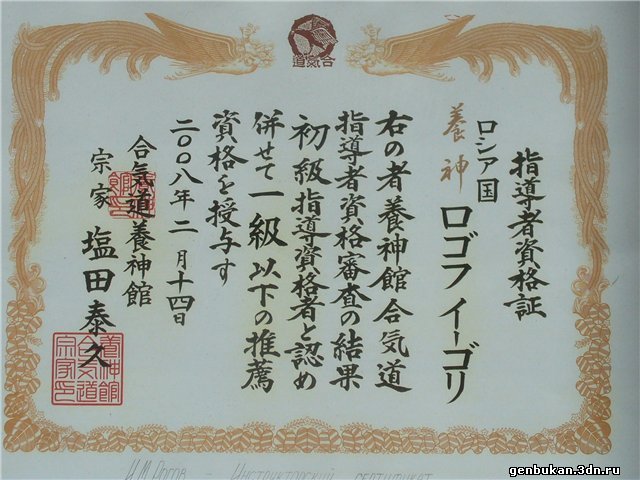 合気道
指導者資格証
ロシア国
養神 ロゴフ イーゴリ
右の者養神館合気道
指導者資格審査の結果
初級指導資格者と認め
併せて一級以下の推薦
資格を授与す
二〇〇八年二月十四日
合氣道養神館
宗家 塩田泰久
И.М.Рогов - Инструкторский сертификат
genbukan.3dn.ru